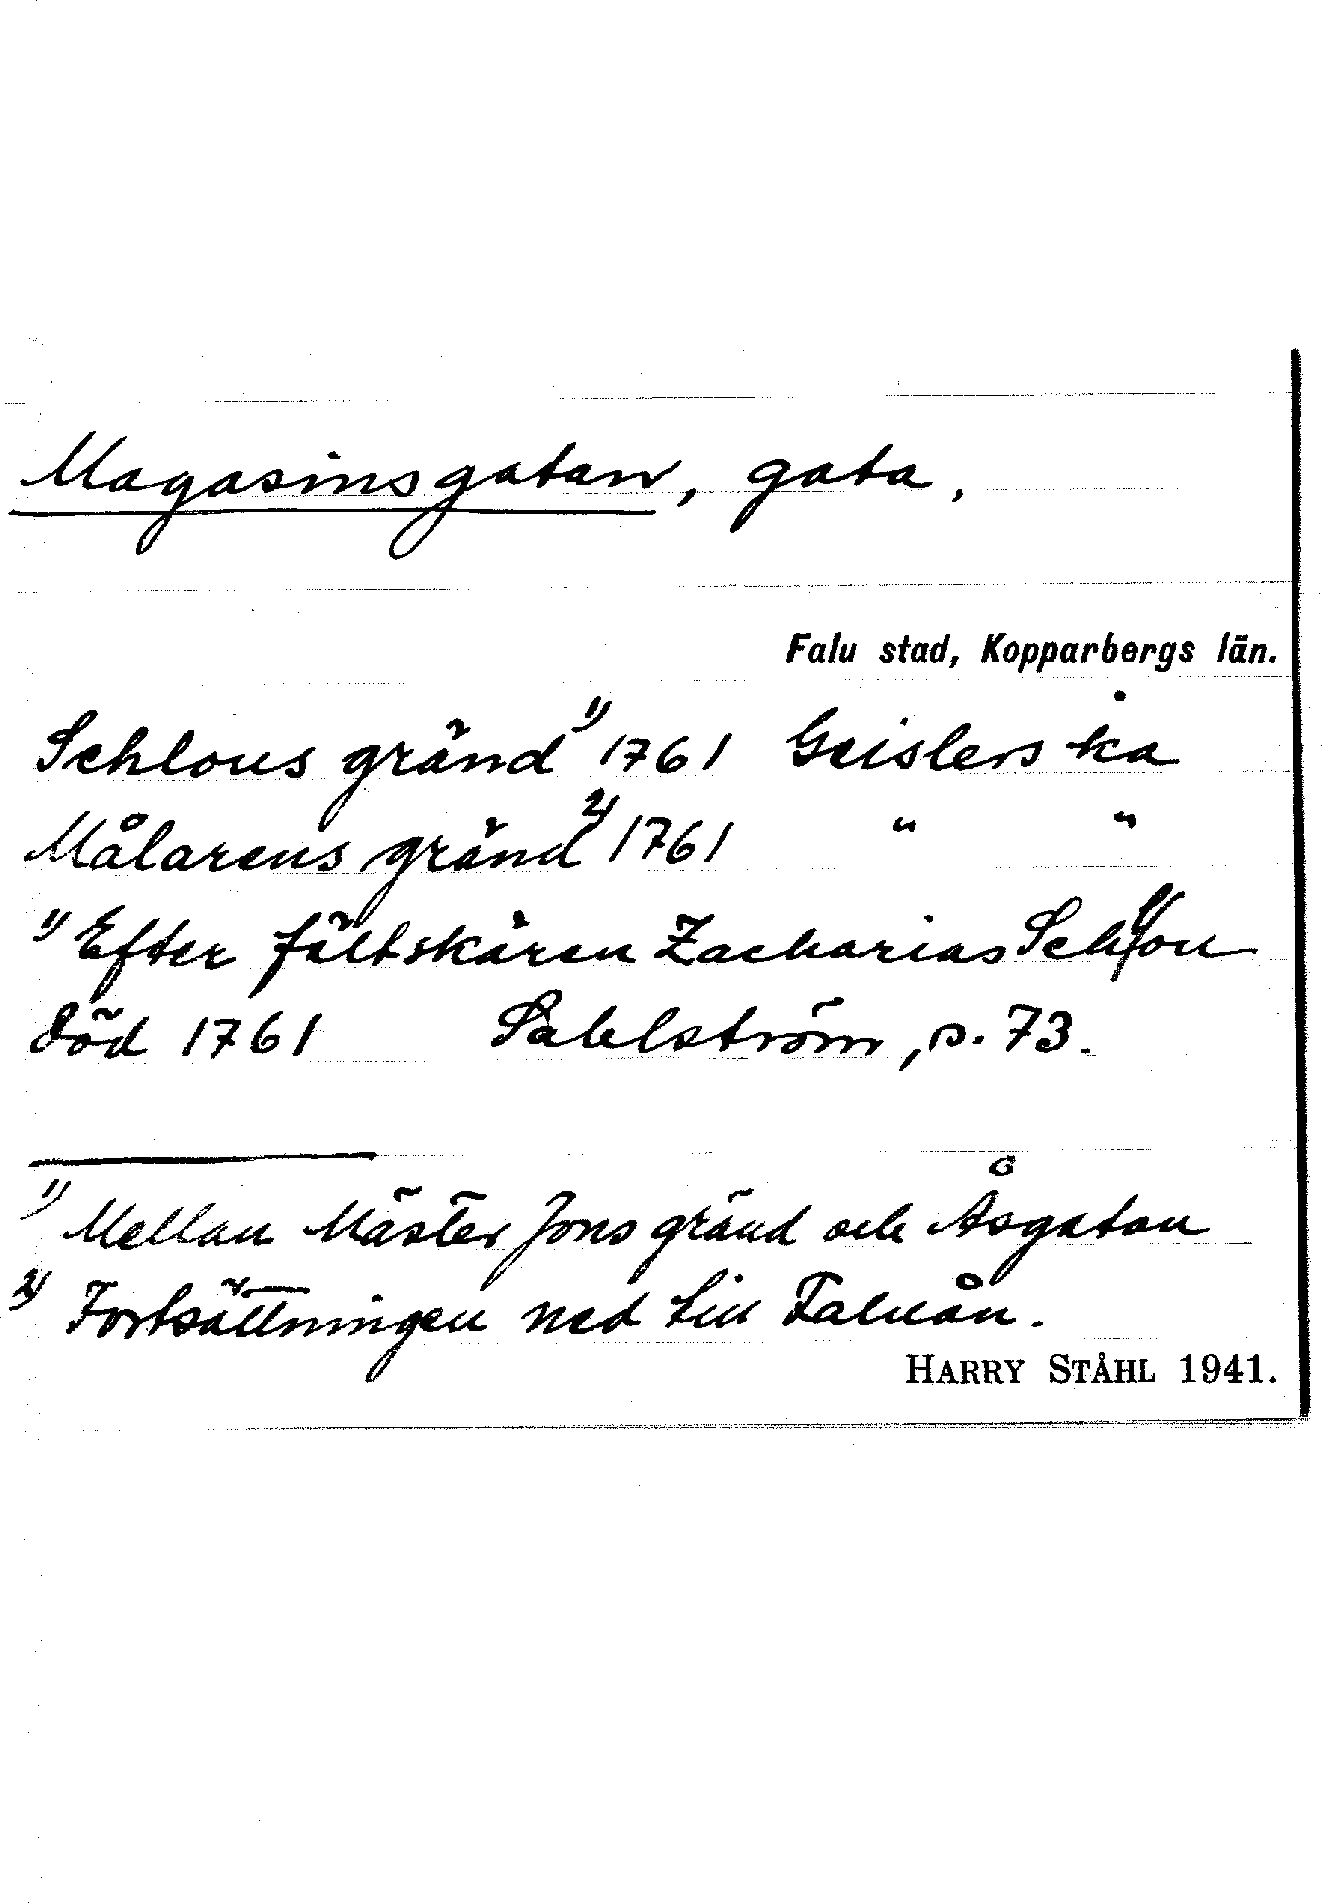 Magasinsgatan, gata.
Falu stad, Kopparbergs län.
Schlous gränd 1) 1761 Geislers ka
Målarens gränd 2) 1761 " "
1) Efter fältskären Zacharias Schlou
död 1761 Sahlström, s. 73.
1) Mellan Mäster Jons gränd och Åsgatan
2) Fortsättningen ned till Faluån.
HARRY STÅHL 1941.